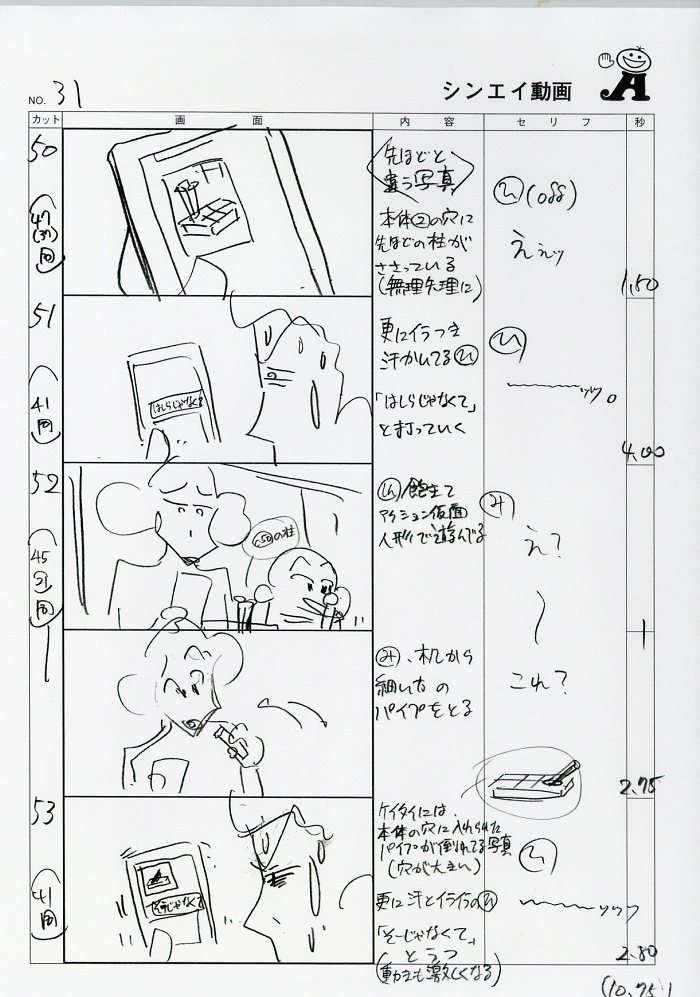 シンエイ動画
NO. 31
カット
画 面
内 容
セ リ フ
秒
50
47
(37)
同
先ほどと
違う写真
本体②の穴に
先ほどの柱が
ささっている
(無理矢理に)
ひ (off)
ええッ
1.50
51
41
同
はしらじゃなくて
更にイラつき
汗かいてるひ
「はしらじゃなくて」
と打っていく
ひ
〜〜〜ッッ。
4.00
52
45
51
同
C50の柱
し 飽きて
アクション仮面
人形で遊んでる
み
え?
〜
1
み、机から
細い方の
パイプをとる
これ?
2.75
53
41
同
そうじゃなくて
ケイタイには、
本体の穴に入れられた
パイプが倒れてる写真
(穴が大きい)
更に汗とイライラのひ
「そーじゃなくて」
とうつ
(動きも激しくなる)
ひ
〜〜〜ッッッ
2.50
(10.75)